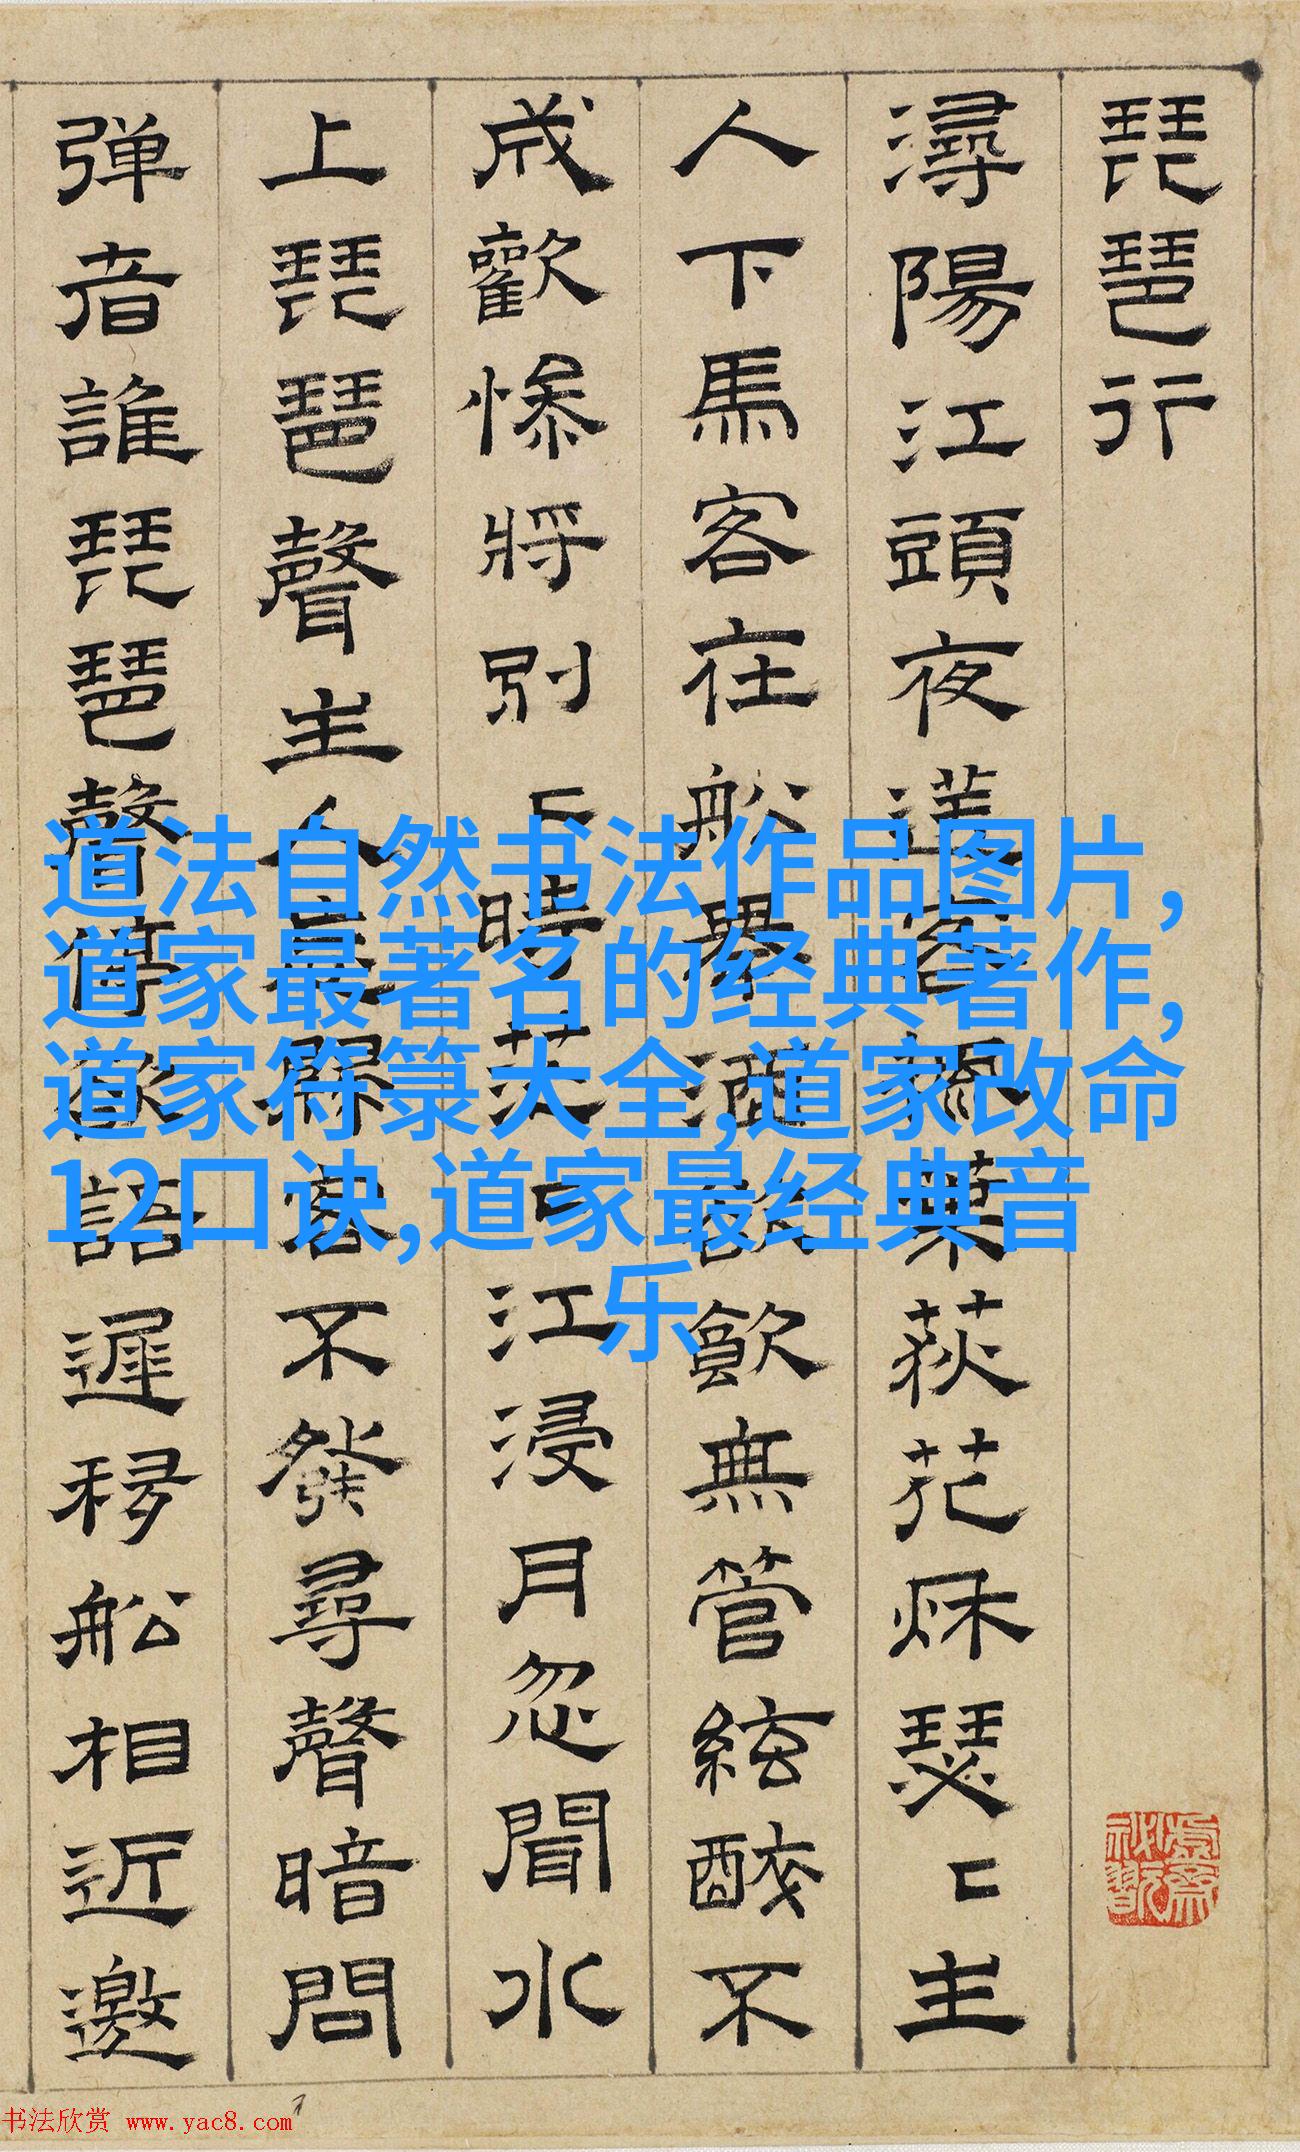 琵琶行
潯陽江頭夜送客楓葉荻花秋瑟〻主
人下馬客在船舉酒欲飲無管絃醉不
成歡慘將別〻時茫〻江浸月忽聞水
上琵琶聲主人忘歸客不發尋聲暗問
弹者誰琵琶聲停欲語遲移船相近邀
道法自然书法作品图片,
道家最著名的经典著作,
道家符箓大全,道家改命
12口诀,道家最经典音
乐
书法欣赏 www.yac8.com